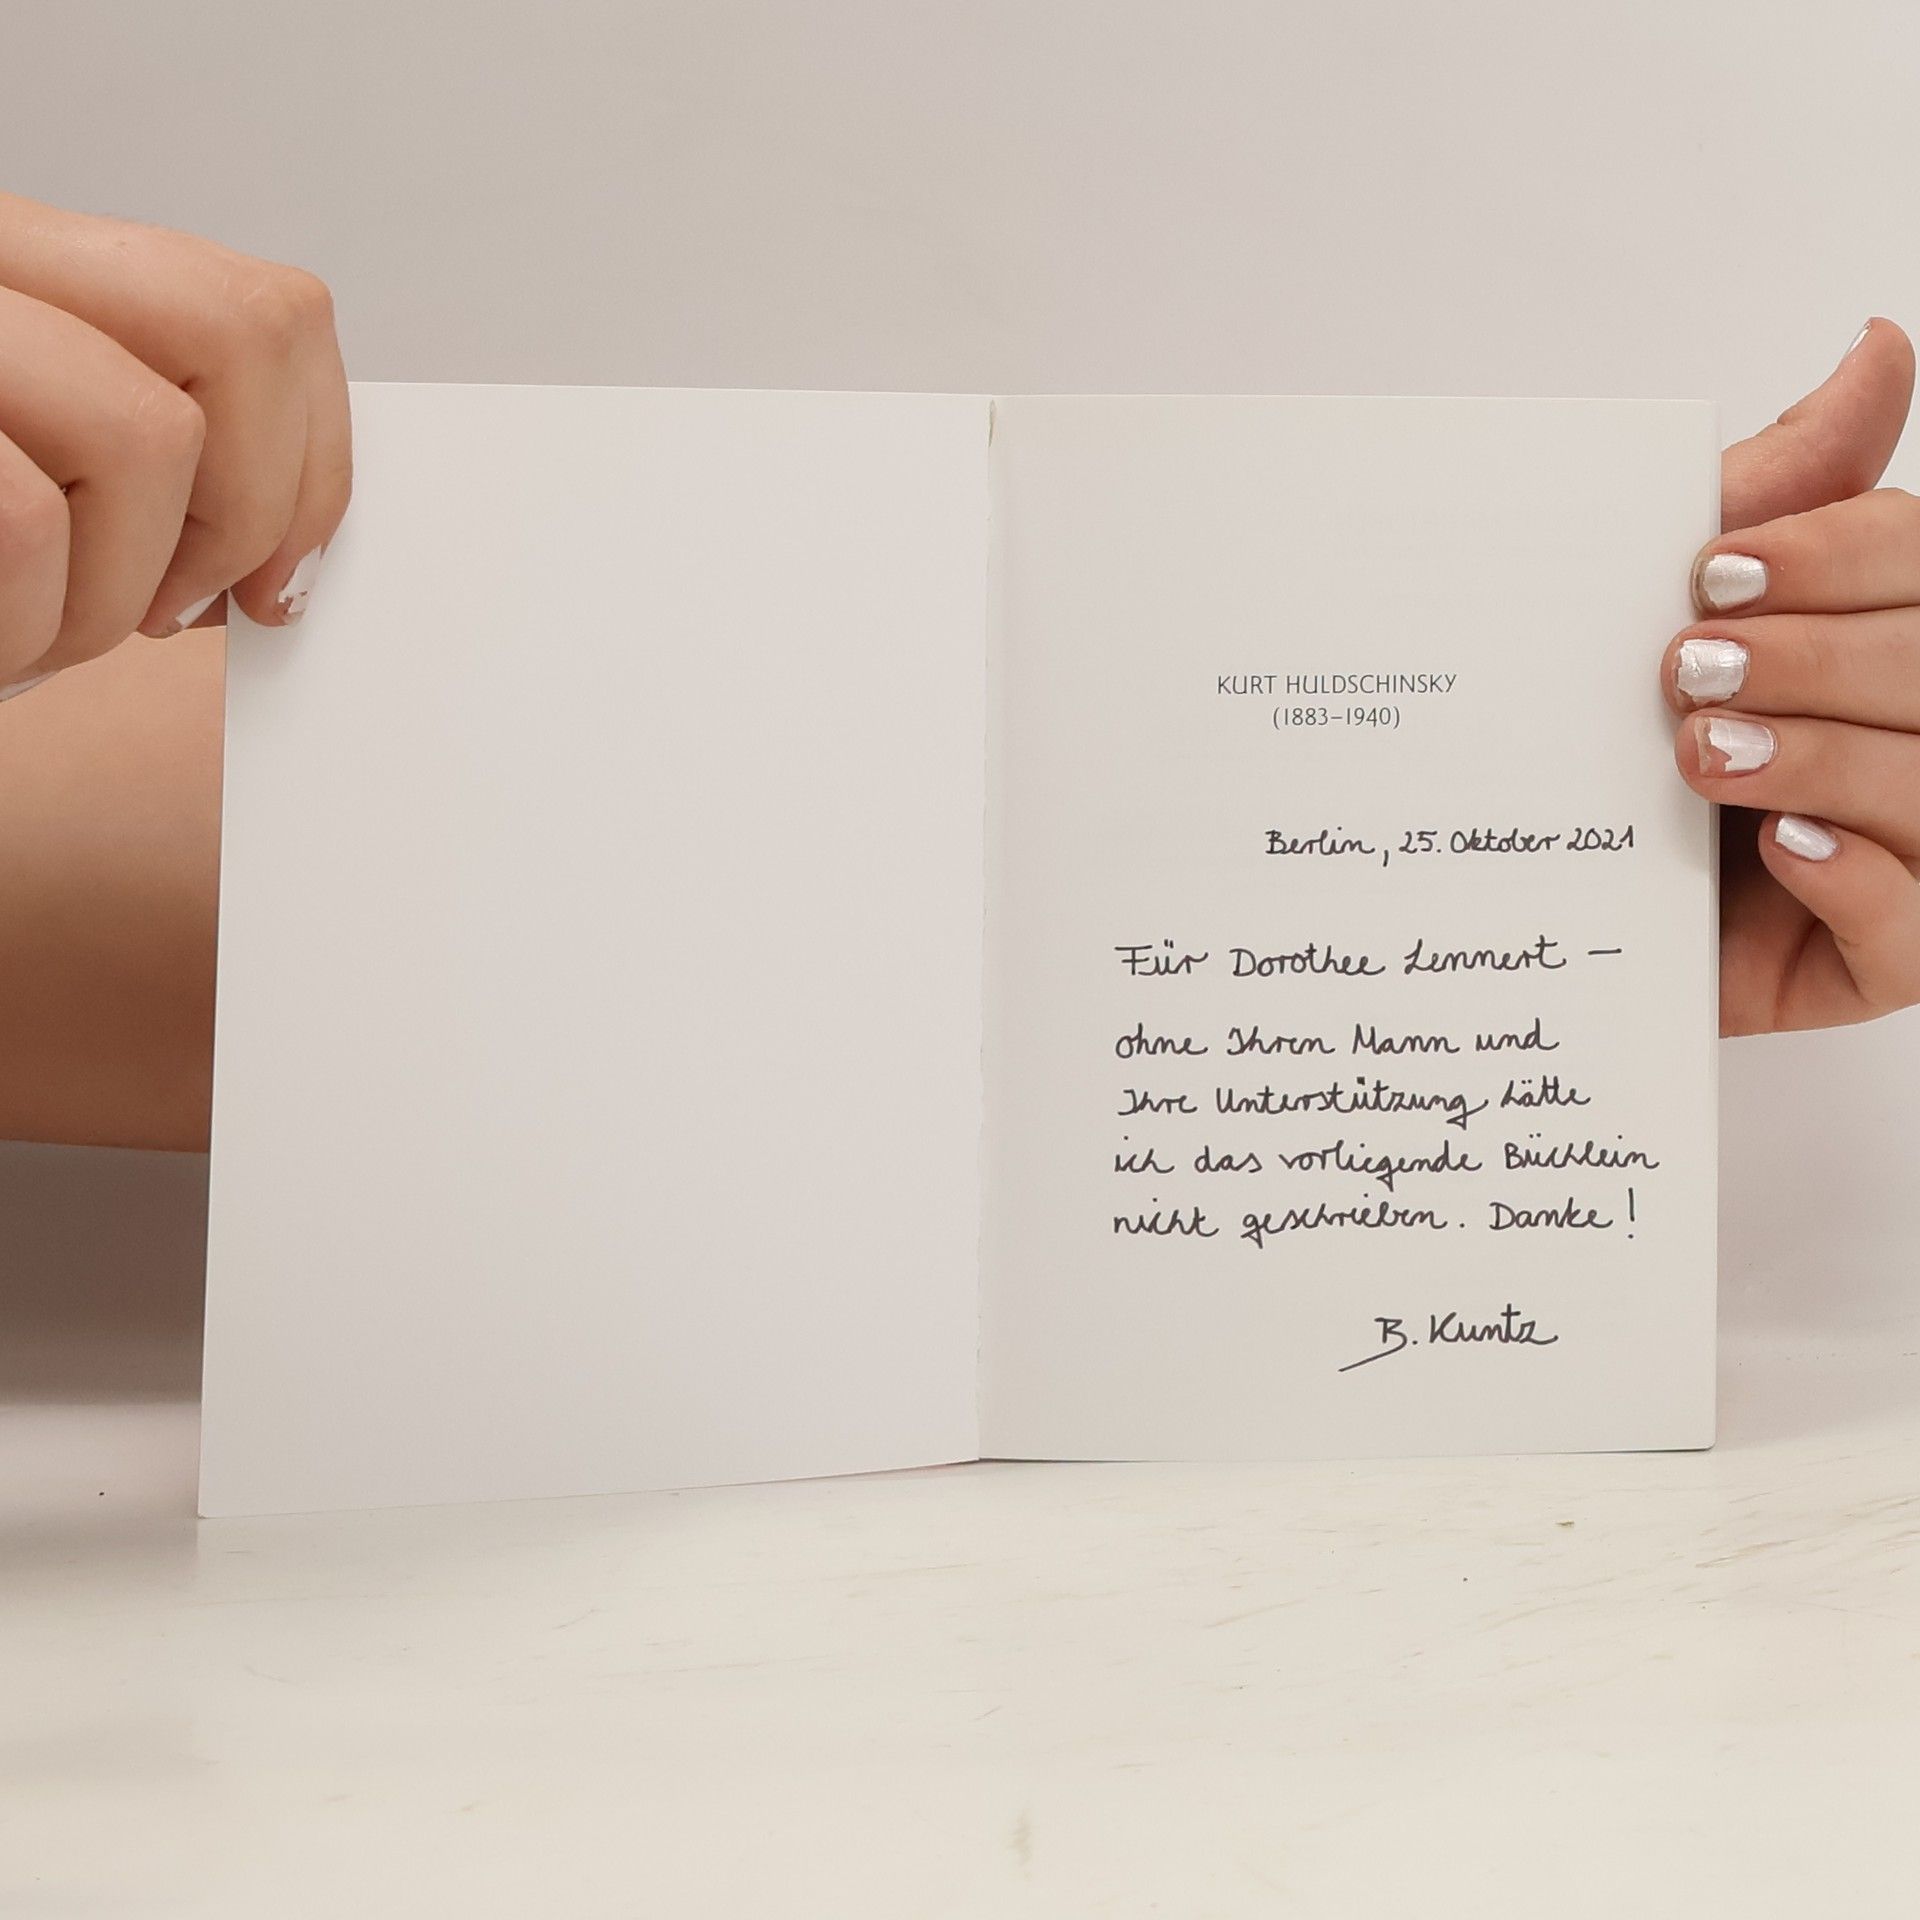 KURT HULDSCHINSKY
(1883–1940)
Berlin, 25. Oktober 2021
Für Dorothee Lennert –
ohne Ihren Mann und
Ihre Unterstützung hätte
ich das vorliegende Büchlein
nicht geschrieben. Danke!
B. Kuntz